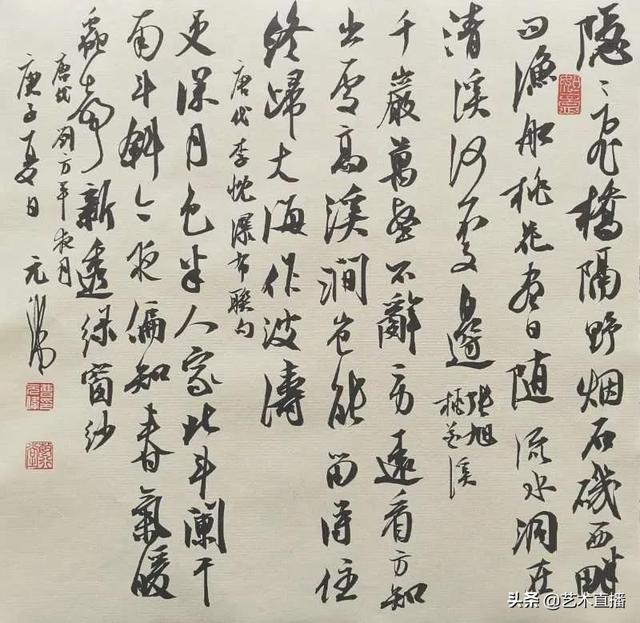 隐〻飛橋隔野烟石磯西畔
问渔船桃花尽日随流水洞在
清溪何處邊
张旭
桃花溪
千巖萬壑不辭劳遠看方知
出處高溪澗岂能留得住
终歸大海作波濤
唐代李忱瀑布联句
更深月色半人家北斗闌干
南斗斜今夜偏知春氣暖
蟲声新透绿窗纱
唐代刘方平夜月
庚子夏日
元
头条@艺术直播